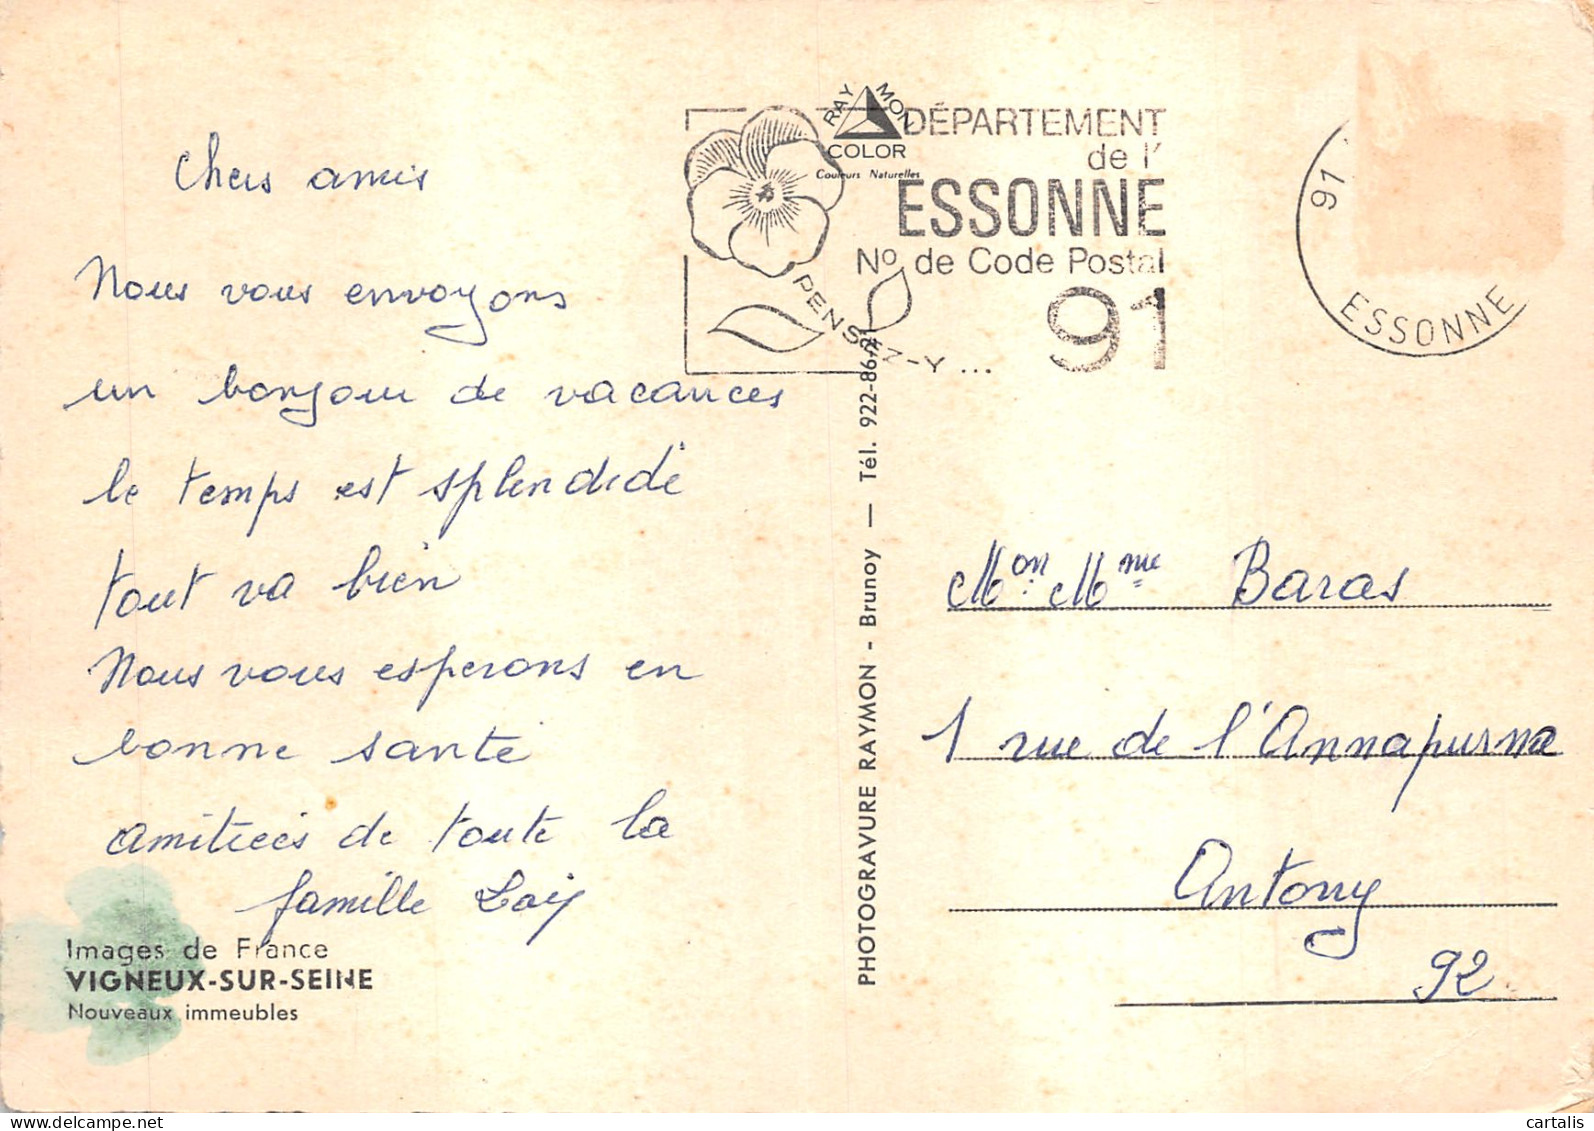 Chers amis
Nous vous envoyons
un bonjour de vacances
le temps est splendide
tout va bien
Nous vous esperons en
bonne santé
Amitieés de toute la
famille
Images de France
VIGNEUX-SUR-SEINE
Nouveaux immeubles
RAYMON
COLOR
Couleurs Naturelles
DÉPARTEMENT
de l'
ESSONNE
No de Code Postal
91
PENSEZ-Y ...
91
ESSONNE
PHOTOGRAVURE RAYMON - Brunoy — Tél. 922-86-21
Mon. Mme Baras
1 rue de l'Annapurna
Antony
92.
cartalis